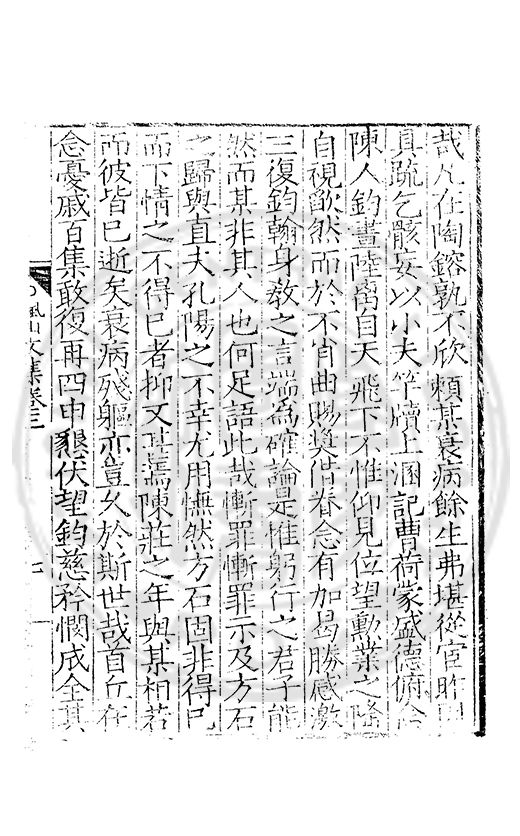 哉凡在陶鎔孰不欣賴某衰病餘生弗堪從宦昨
具疏乞骸妄以小夫竿牘上溷記曹荷蒙盛德俯
陳人鈞畫陸離自天飛下不惟仰見位望勳業之隆
自視歉然而於不肖曲賜奨借眷念有加曷勝感激
三復鈞翰身教之言端為確論是惟躬行之君子能
然而某非其人也何足語此哉慚罪慚罪示及方石
之歸與直夫孔陽之不幸尤用憮然方石固非得已
而下情之不得已者抑又甚焉陳莊之年與某相若
而彼皆已逝矣衰病殘軀亦豈久於斯世哉首丘在
念憂戚百集敢復再四申懇伏望鈞慈矜憫成全其
風山文集卷三